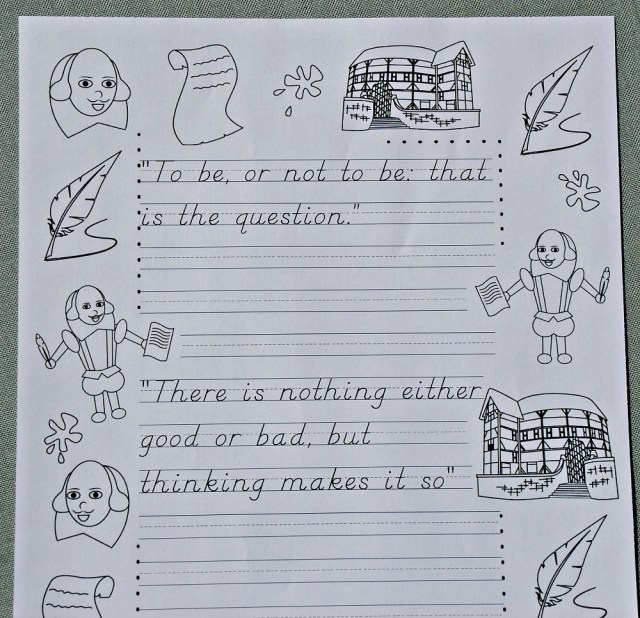 "To be, or not to be: that
is the question."
"There is nothing either
good or bad, but
thinking makes it so"